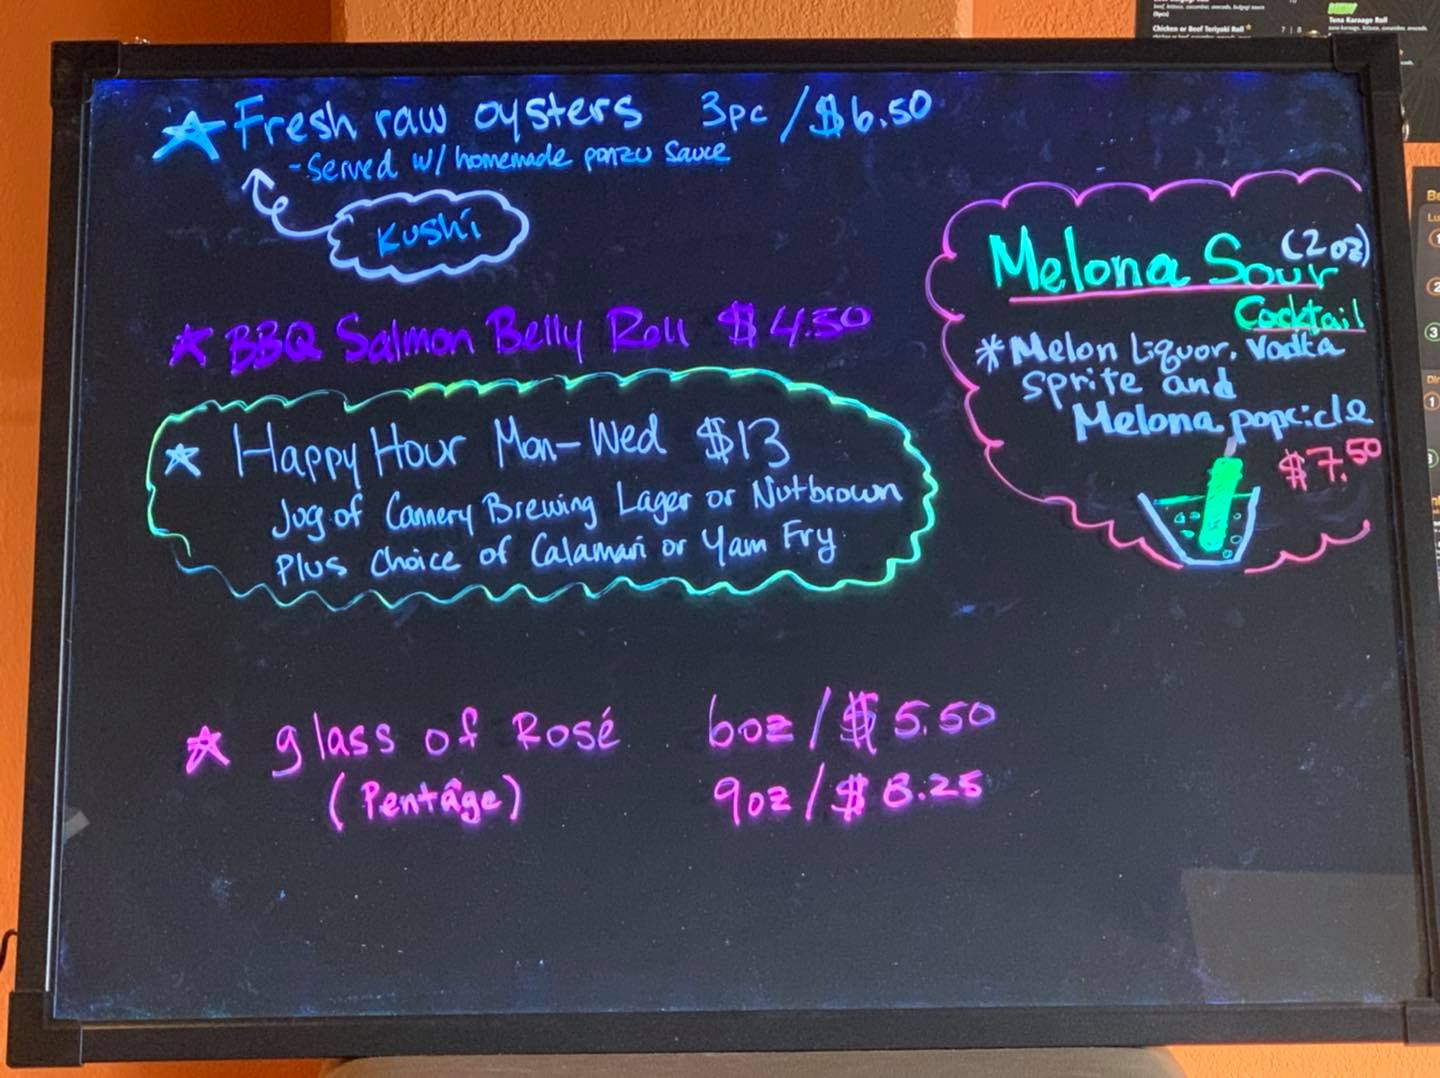 Fresh raw oysters 3pc / $6.50
- Served w/ homemade ponzu sauce
Kushi
BBQ Salmon Belly Roll $4.50
Happy Hour Mon-Wed $13
Jug of Cannery Brewing Lager or Nutbrown
Plus Choice of Calamari or Yam Fry
Melona Sour (2oz)
Cocktail
*Melon Liquor, Vodka
Sprite and
Melona popcicle
$7.50
glass of Rosé 6oz / $5.50
(Pentâge) 9oz / $8.25
Chicken or Beef Teriyaki Roll
7 | 8
Tuna Karaage Roll